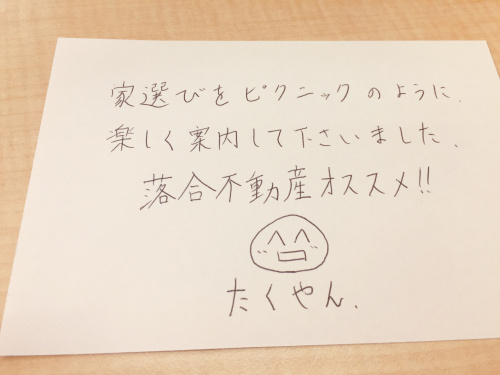 家選びをピクニックのように.
楽しく案内して下さいました.
落合不動産オススメ!!
たくやん.